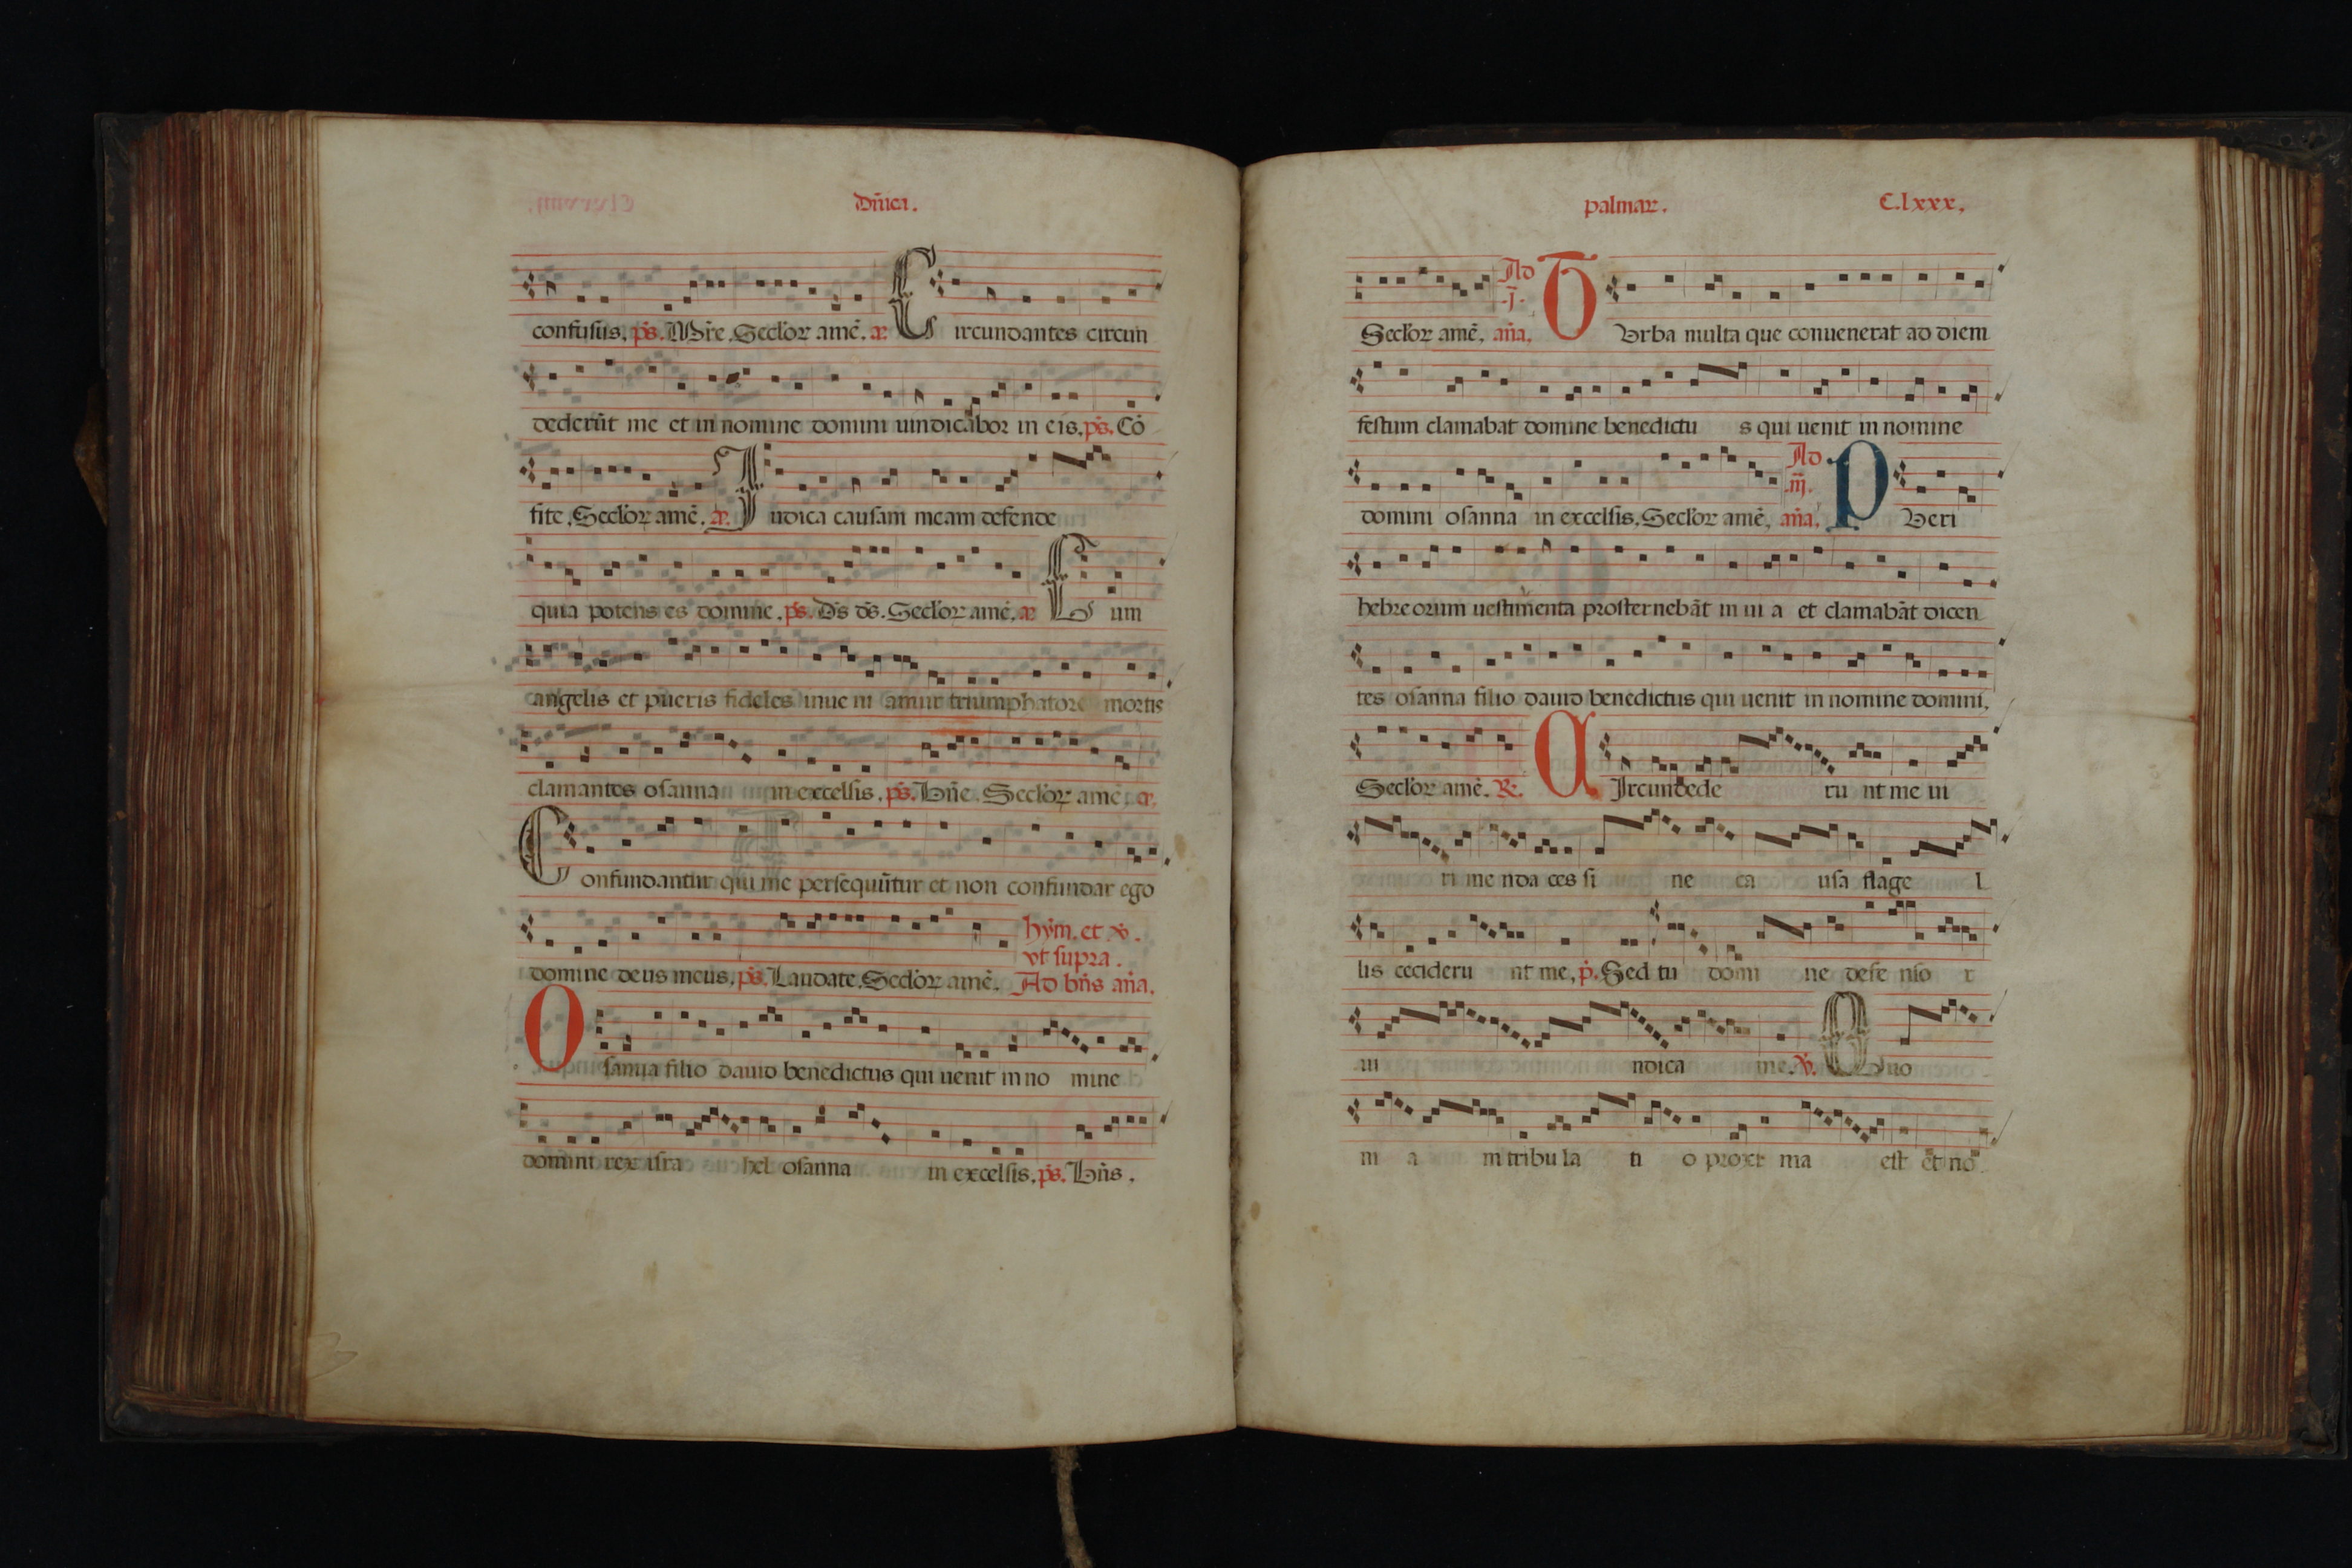 Dñica.
confusus. ps. Mẞre. Seclor amē. a Circundantes circun
dederūt me et in nomine domini uindicabor in eis. ps. Cō
fite. Seclor amē. a Judica causam meam defende
quia potens es domine. ps. Ds ds. Seclor amē. a Cum
angelis et pueris fideles inue ni amur triumphatore mortis
clamantes osanna in excelsis. ps. Dñe. Seclor amē. a
Confundantur qui me persequūtur et non confundar ego
hym. et v.
vt supra.
domine deus meus. ps. Laudate. Seclor amē. Ad bñs aña.
Osanna filio dauid benedictus qui uenit in no mine
domini rex isra hel osanna in excelsis. ps. Bñs.
palmar. C.lxxx.
Ad
.j.
Seclor amē. aña. Turba multa que conuenerat ad diem
festum clamabat domine benedictu s qui uenit in nomine
Ad
.iij.
domini osanna in excelsis. Seclor amē. aña. Pueri
hebreorum uestimenta prosternebāt in ui a et clamabāt dicen
tes osanna filio dauid benedictus qui uenit in nomine domini.
Seclor amē. R. Circundede ru nt me ui
ri menda ces si ne ca usa flage l
lis cecideru nt me. p. Sed tu domi ne defe nso r
ui ndica me. v. Quo
ni a m tribu la ti o proxi ma est et nō